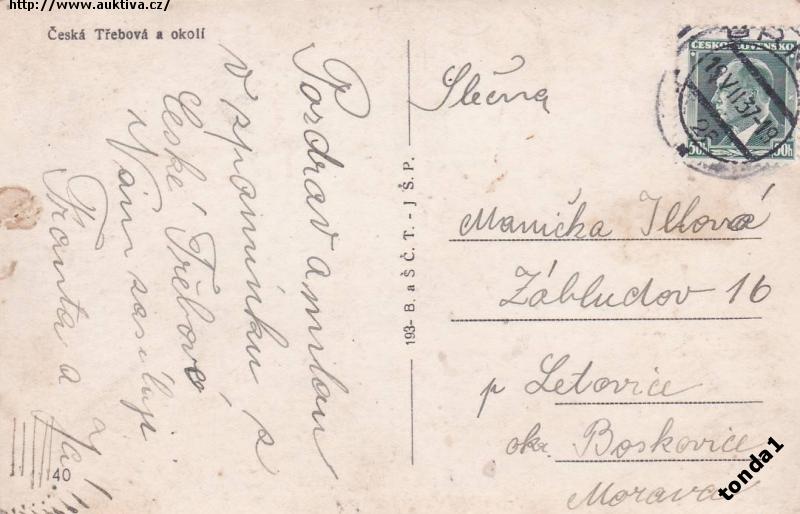 http://www.auktiva.cz/
Česká Třebová a okolí
Pozdrav a milou
vzpomínku z
České Třebové
Vám zasílají
Fronta a
Slečna
Manička Illová
Zábludov 16
p Letovice
okr. Boskovice
Morava
193- B. a Š Č. T. - J Š. P.
40
ČESKOSLOVENSKO
50h 50h
16 VII 37
tonda1